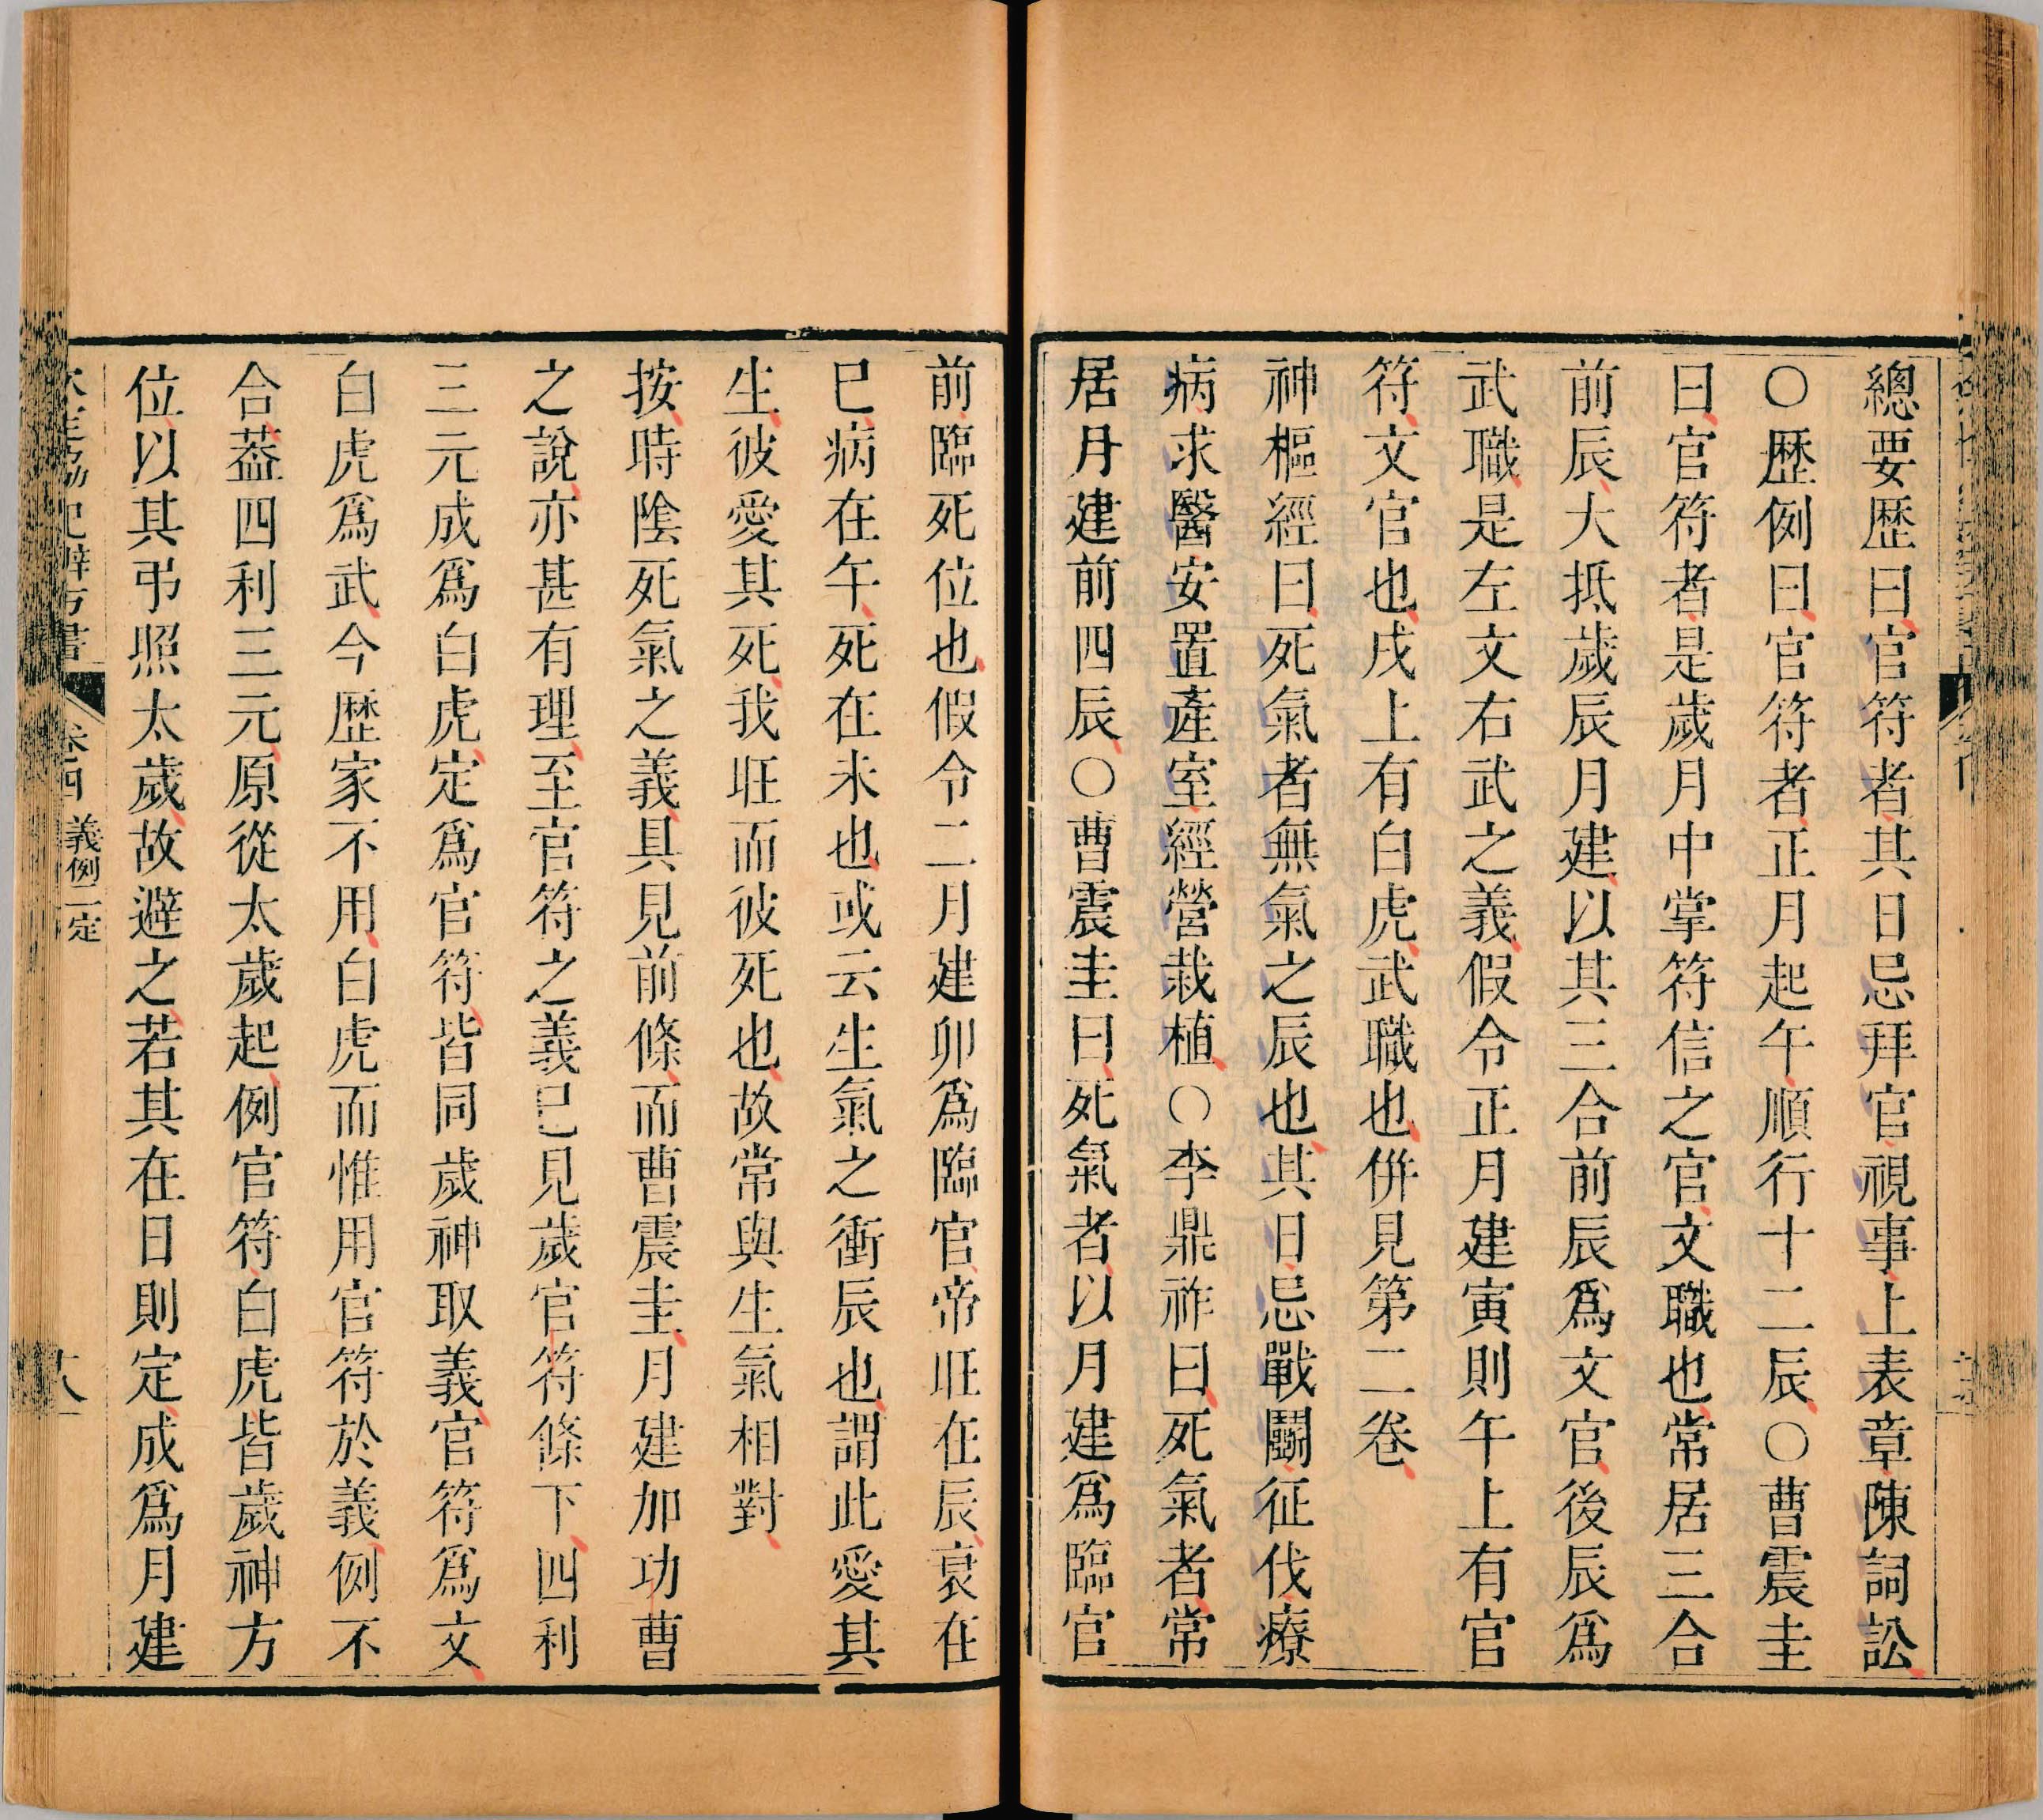 總要歴曰官符者其日忌拜官視事上表章陳詞訟
〇歴例曰官符者正月起午順行十二辰〇曹震圭
曰官符者是歲月中掌符信之官文職也常居三合
前辰大抵歲辰月建以其三合前辰爲文官後辰爲
武職是左文右武之義假令正月建寅則午上有官
符文官也戌上有白虎武職也併見第二卷
神樞經曰死氣者無氣之辰也其日忌戰鬬征伐療
病求醫安置產室經營栽植〇李鼎祚曰死氣者常
居月建前四辰〇曹震圭曰死氣者以月建爲臨官
前臨死位也假令二月建卯爲臨官帝旺在辰衰在
巳病在午死在未也或云生氣之衝辰也謂此愛其
生彼愛其死我旺而彼死也故常與生氣相對
按時陰死氣之義具見前條而曹震圭月建加功曹
之說亦甚有理至官符之義已見歲官符條下四利
三元成爲白虎定爲官符皆同歲神取義官符爲文
白虎爲武今歴家不用白虎而惟用官符於義例不
合葢四利三元原從太歲起例官符白虎皆歲神方
位以其弔照太歲故避之若其在日則定成爲月建
卷四 義例二 定